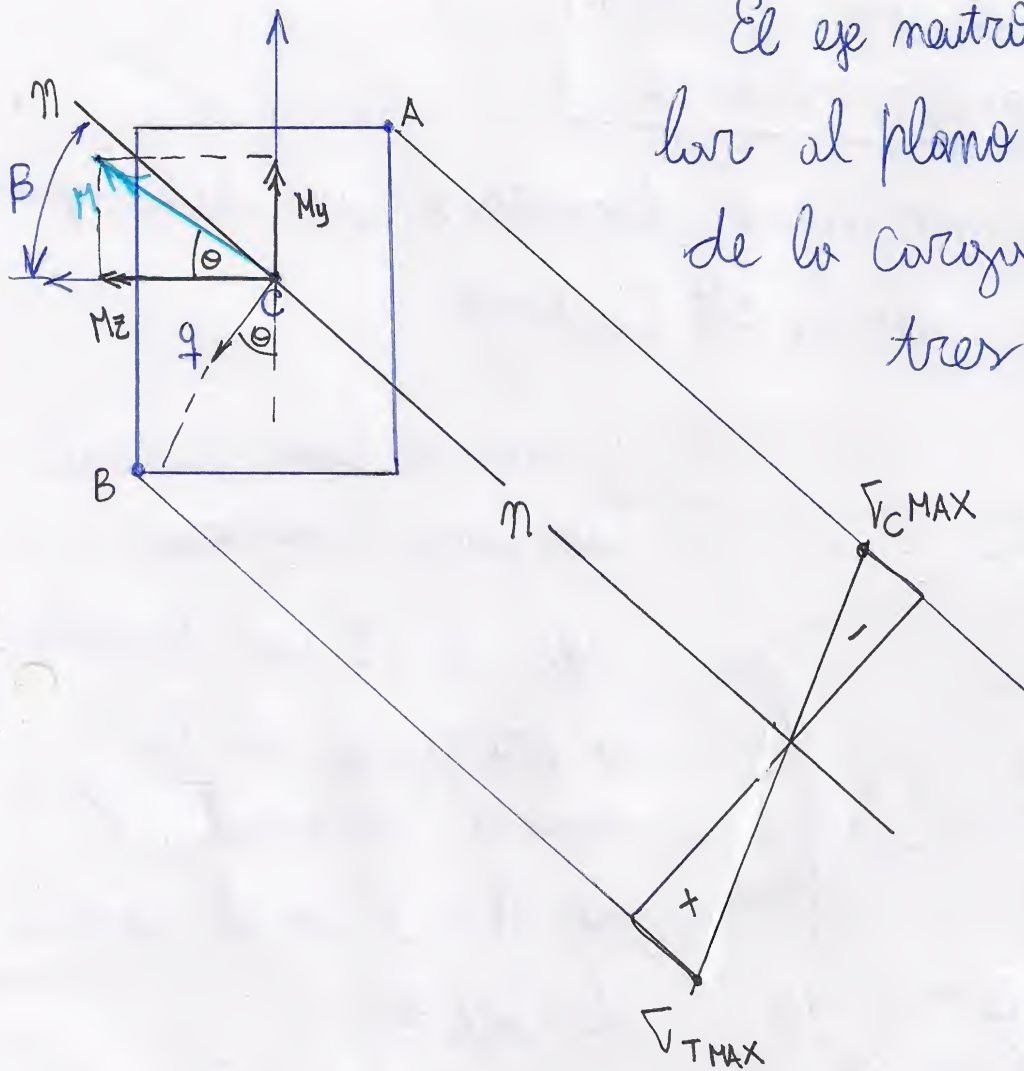 El eje neutro
lar al plano
de la carga
tres
n
A
B
M
My
θ
C
Mz
q
θ
B
n
σC MAX
-
+
σT MAX